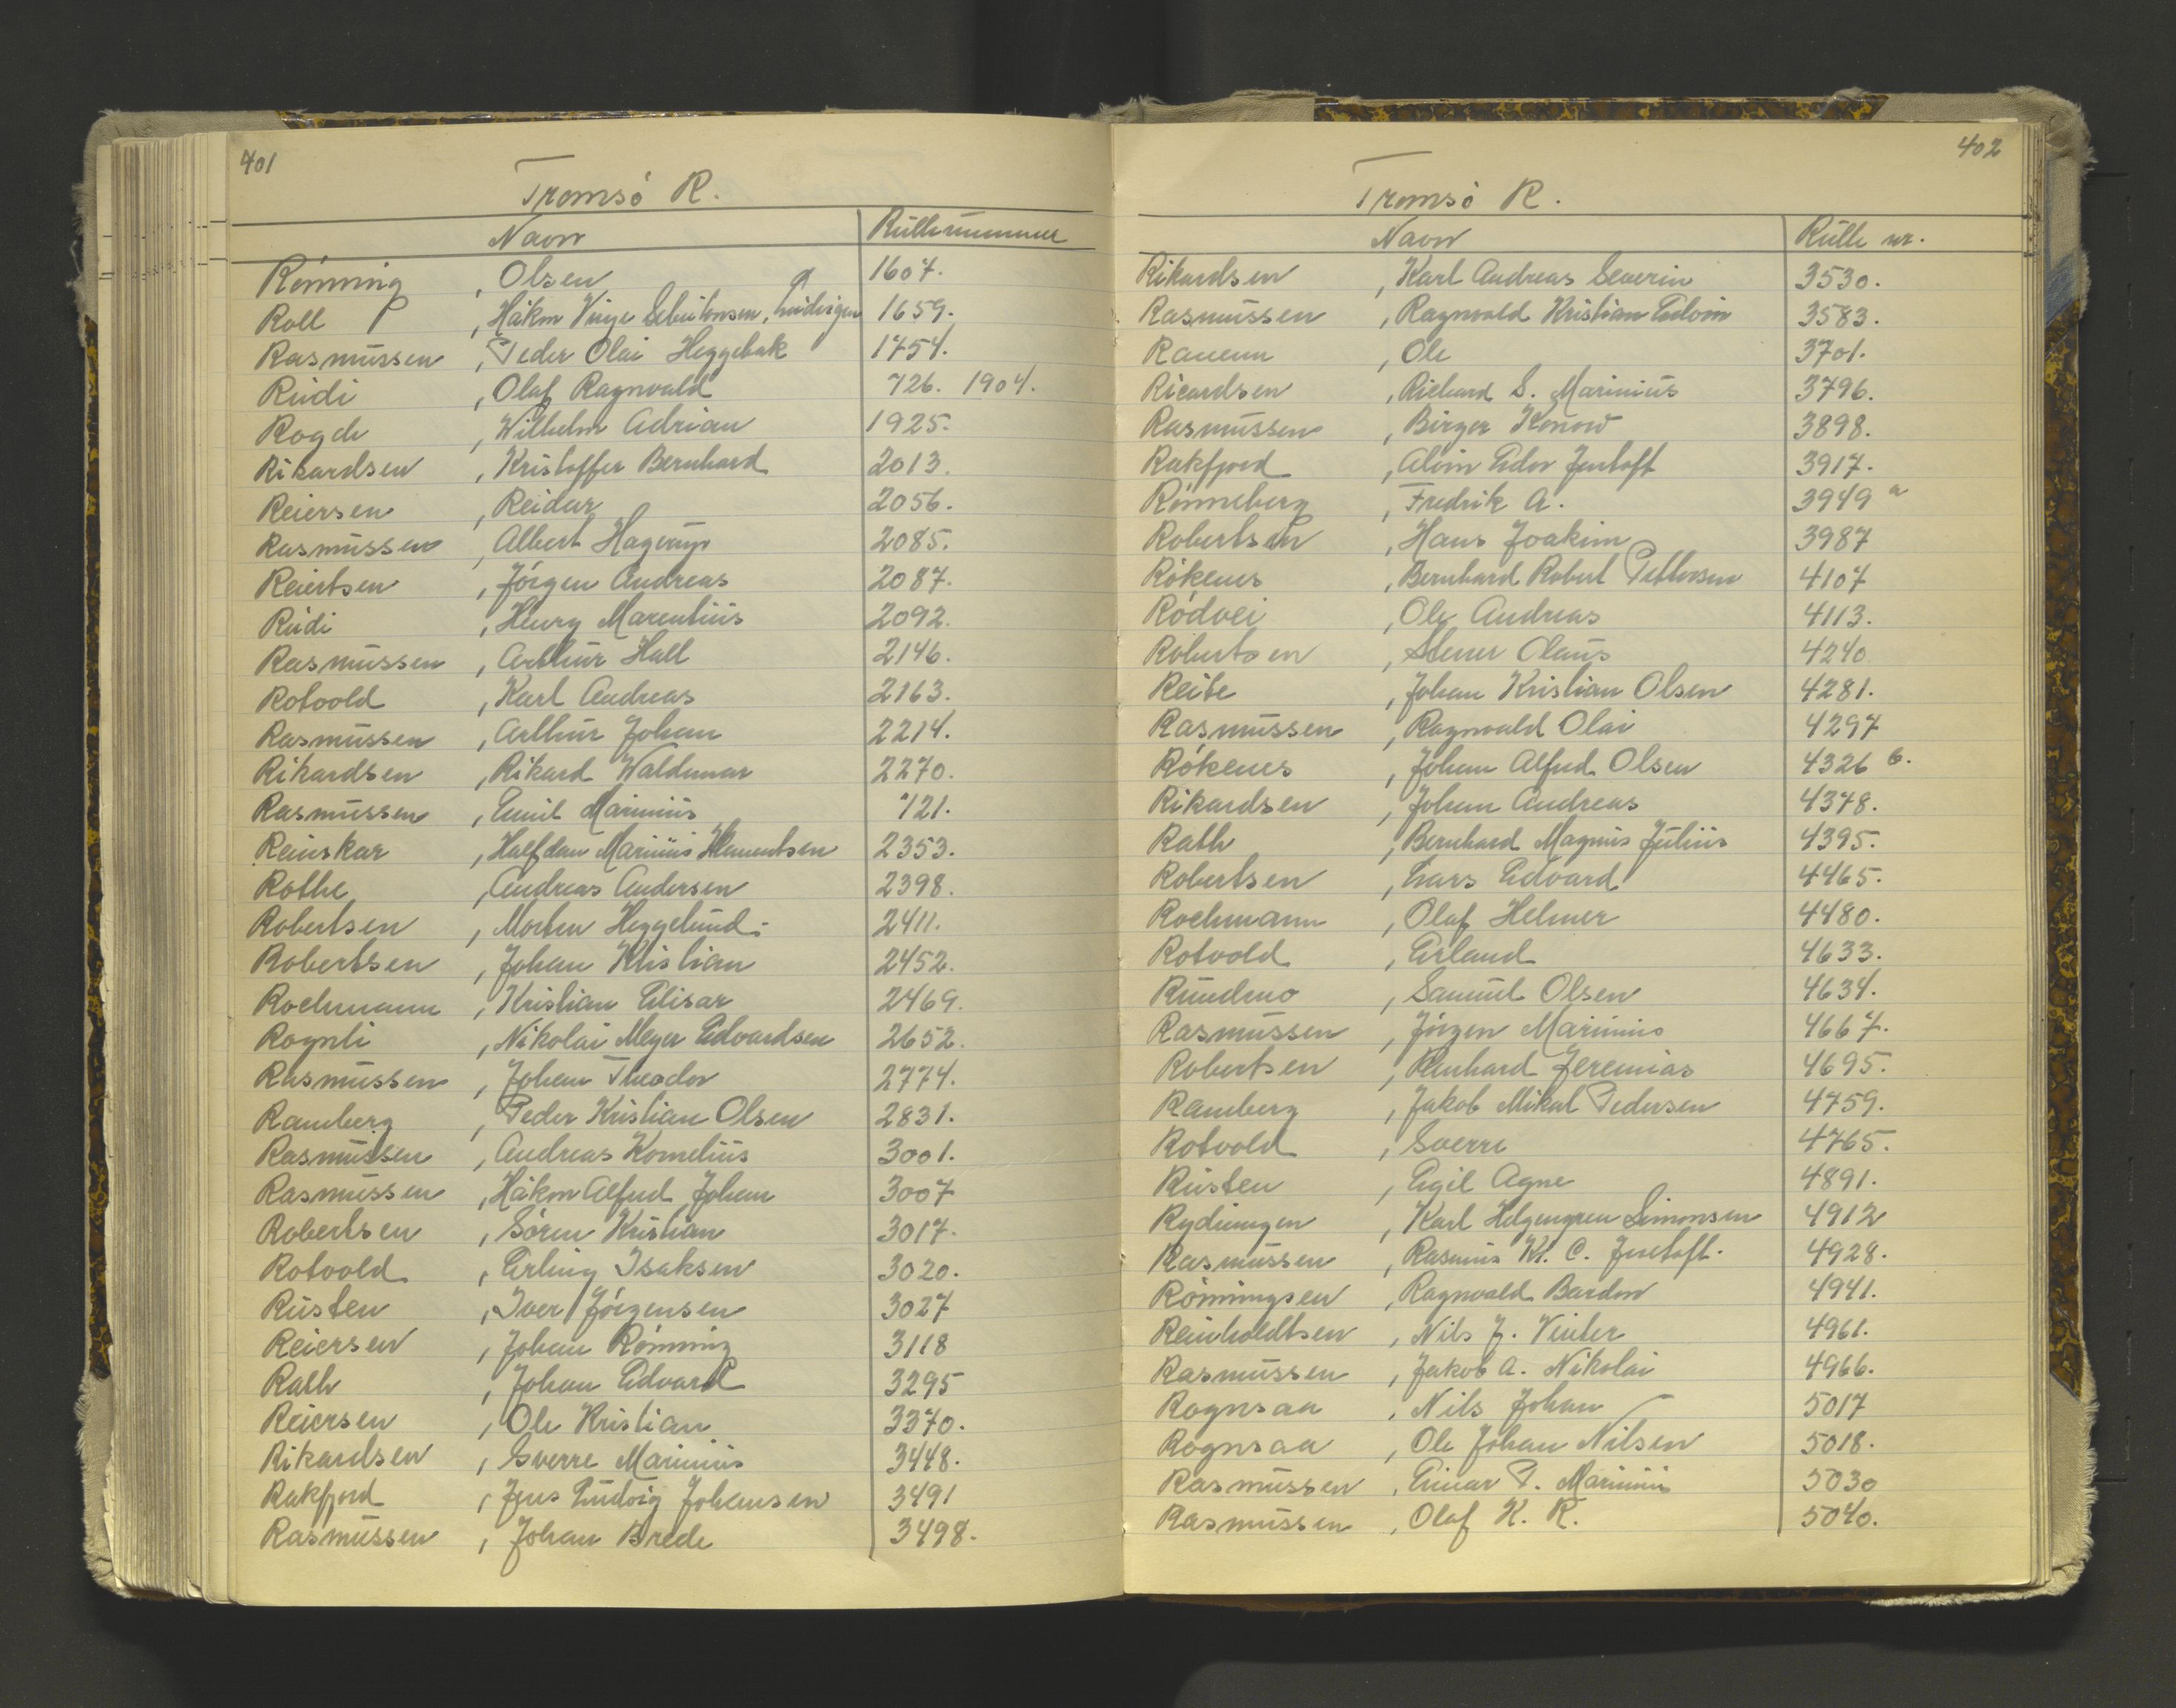 401
Tromsö R.
Navn Rullenummer
Rönning, Olsen 1607.
Roll, Håkon Vinje Schiitonsen, Ludvigsen 1659.
Rasmussen, Peder Olai Heggebak 1754.
Rudi, Olaf Ragnvald 726. 1904.
Rogde, Wilhelm Adrian 1925.
Rikardsen, Kristoffer Bernhard 2013.
Reiersen, Reidar 2056.
Rasmussen, Albert Hagerup 2085.
Reiertsen, Jörgen Andreas 2087.
Rudi, Henry Marentius 2092.
Rasmussen, Arthur Hall 2146.
Rotvold, Karl Andreas 2163.
Rasmussen, Arthur Johan 2214.
Rikardsen, Rikard Waldemar 2270.
Rasmussen, Emil Marinius 121.
Reinskar, Halfdan Marinus Klementsen 2353.
Rothe, Andreas Andersen 2398.
Robertsen, Morten Heggelund. 2411.
Robertsen, Johan Kristian 2452.
Rochmann, Kristian Elisar 2469.
Rognli, Nikolai Meyer Edvardsen 2652.
Rasmussen, Johan Theodor 2774.
Ramberg, Peder Kristian Olsen 2831.
Rasmussen, Andreas Kornelius 3001.
Rasmussen, Håkon Alfred Johan 3007
Robertsen, Sören Kristian 3017.
Rotvold, Erling Isaksen 3020.
Rusten, Iver Jörgensen 3027
Reiersen, Johan Rönning 3118
Rath, Johan Edvard 3295
Reiersen, Ole Kristian 3370.
Rikardsen, Sverre Marinius 3448.
Rakfjord, Jens Ludvig Johansen 3491
Rasmussen, Johan Brede 3498.
402
Tromsö R.
Navn Rulle nr.
Rikardsen, Karl Andreas Severin 3530.
Rasmussen, Ragnvald Kristian Edvin 3583.
Rauenn, Ole 3701.
Ricardsen, Richard S. Marinius 3796.
Rasmussen, Birger Konow 3898.
Rakfjord, Alvin Edor Jentoft 3917.
Rönneberg, Fredrik A. 3949 a
Robertsen, Hans Joakim 3987
Rökenes, Bernhard Robert Pettersen 4107
Rödvei, Ole Andreas 4113.
Robertsen, Stener Olaus 4240
Reite, Johan Kristian Olsen 4281.
Rasmussen, Ragnvald Olai 4297
Rökenes, Johan Alfred Olsen 4326 b.
Rikardsen, Johan Andreas 4348.
Rath, Bernhard Magnus Julius 4395.
Robertsen, Lars Edvard 4465.
Rochmann, Olaf Helmer 4480.
Rotvold, Erland 4633.
Rundmo, Samuel Olsen 4634.
Rasmussen, Jörgen Marinius 4667.
Robertsen, Renhard Jeremias 4695.
Ramberg, Jakob Mikal Pedersen 4759.
Rotvold, Sverre 4765.
Rusten, Egil Agne 4891.
Rydningen, Karl Helgengren Simonsen 4912
Rasmussen, Rasmus Kr. C. Jentoft. 4928.
Rönningsen, Ragnvald Bardon 4941.
Reinholdtsen, Nils J. Vinter 4961.
Rasmussen, Jakob A. Nikolai 4966.
Rognsaa, Nils Johan 5017
Rognsaa, Ole Johan Nilsen 5018.
Rasmussen, Einar P. Marinius 5030
Rasmussen, Olaf K. R. 5040.